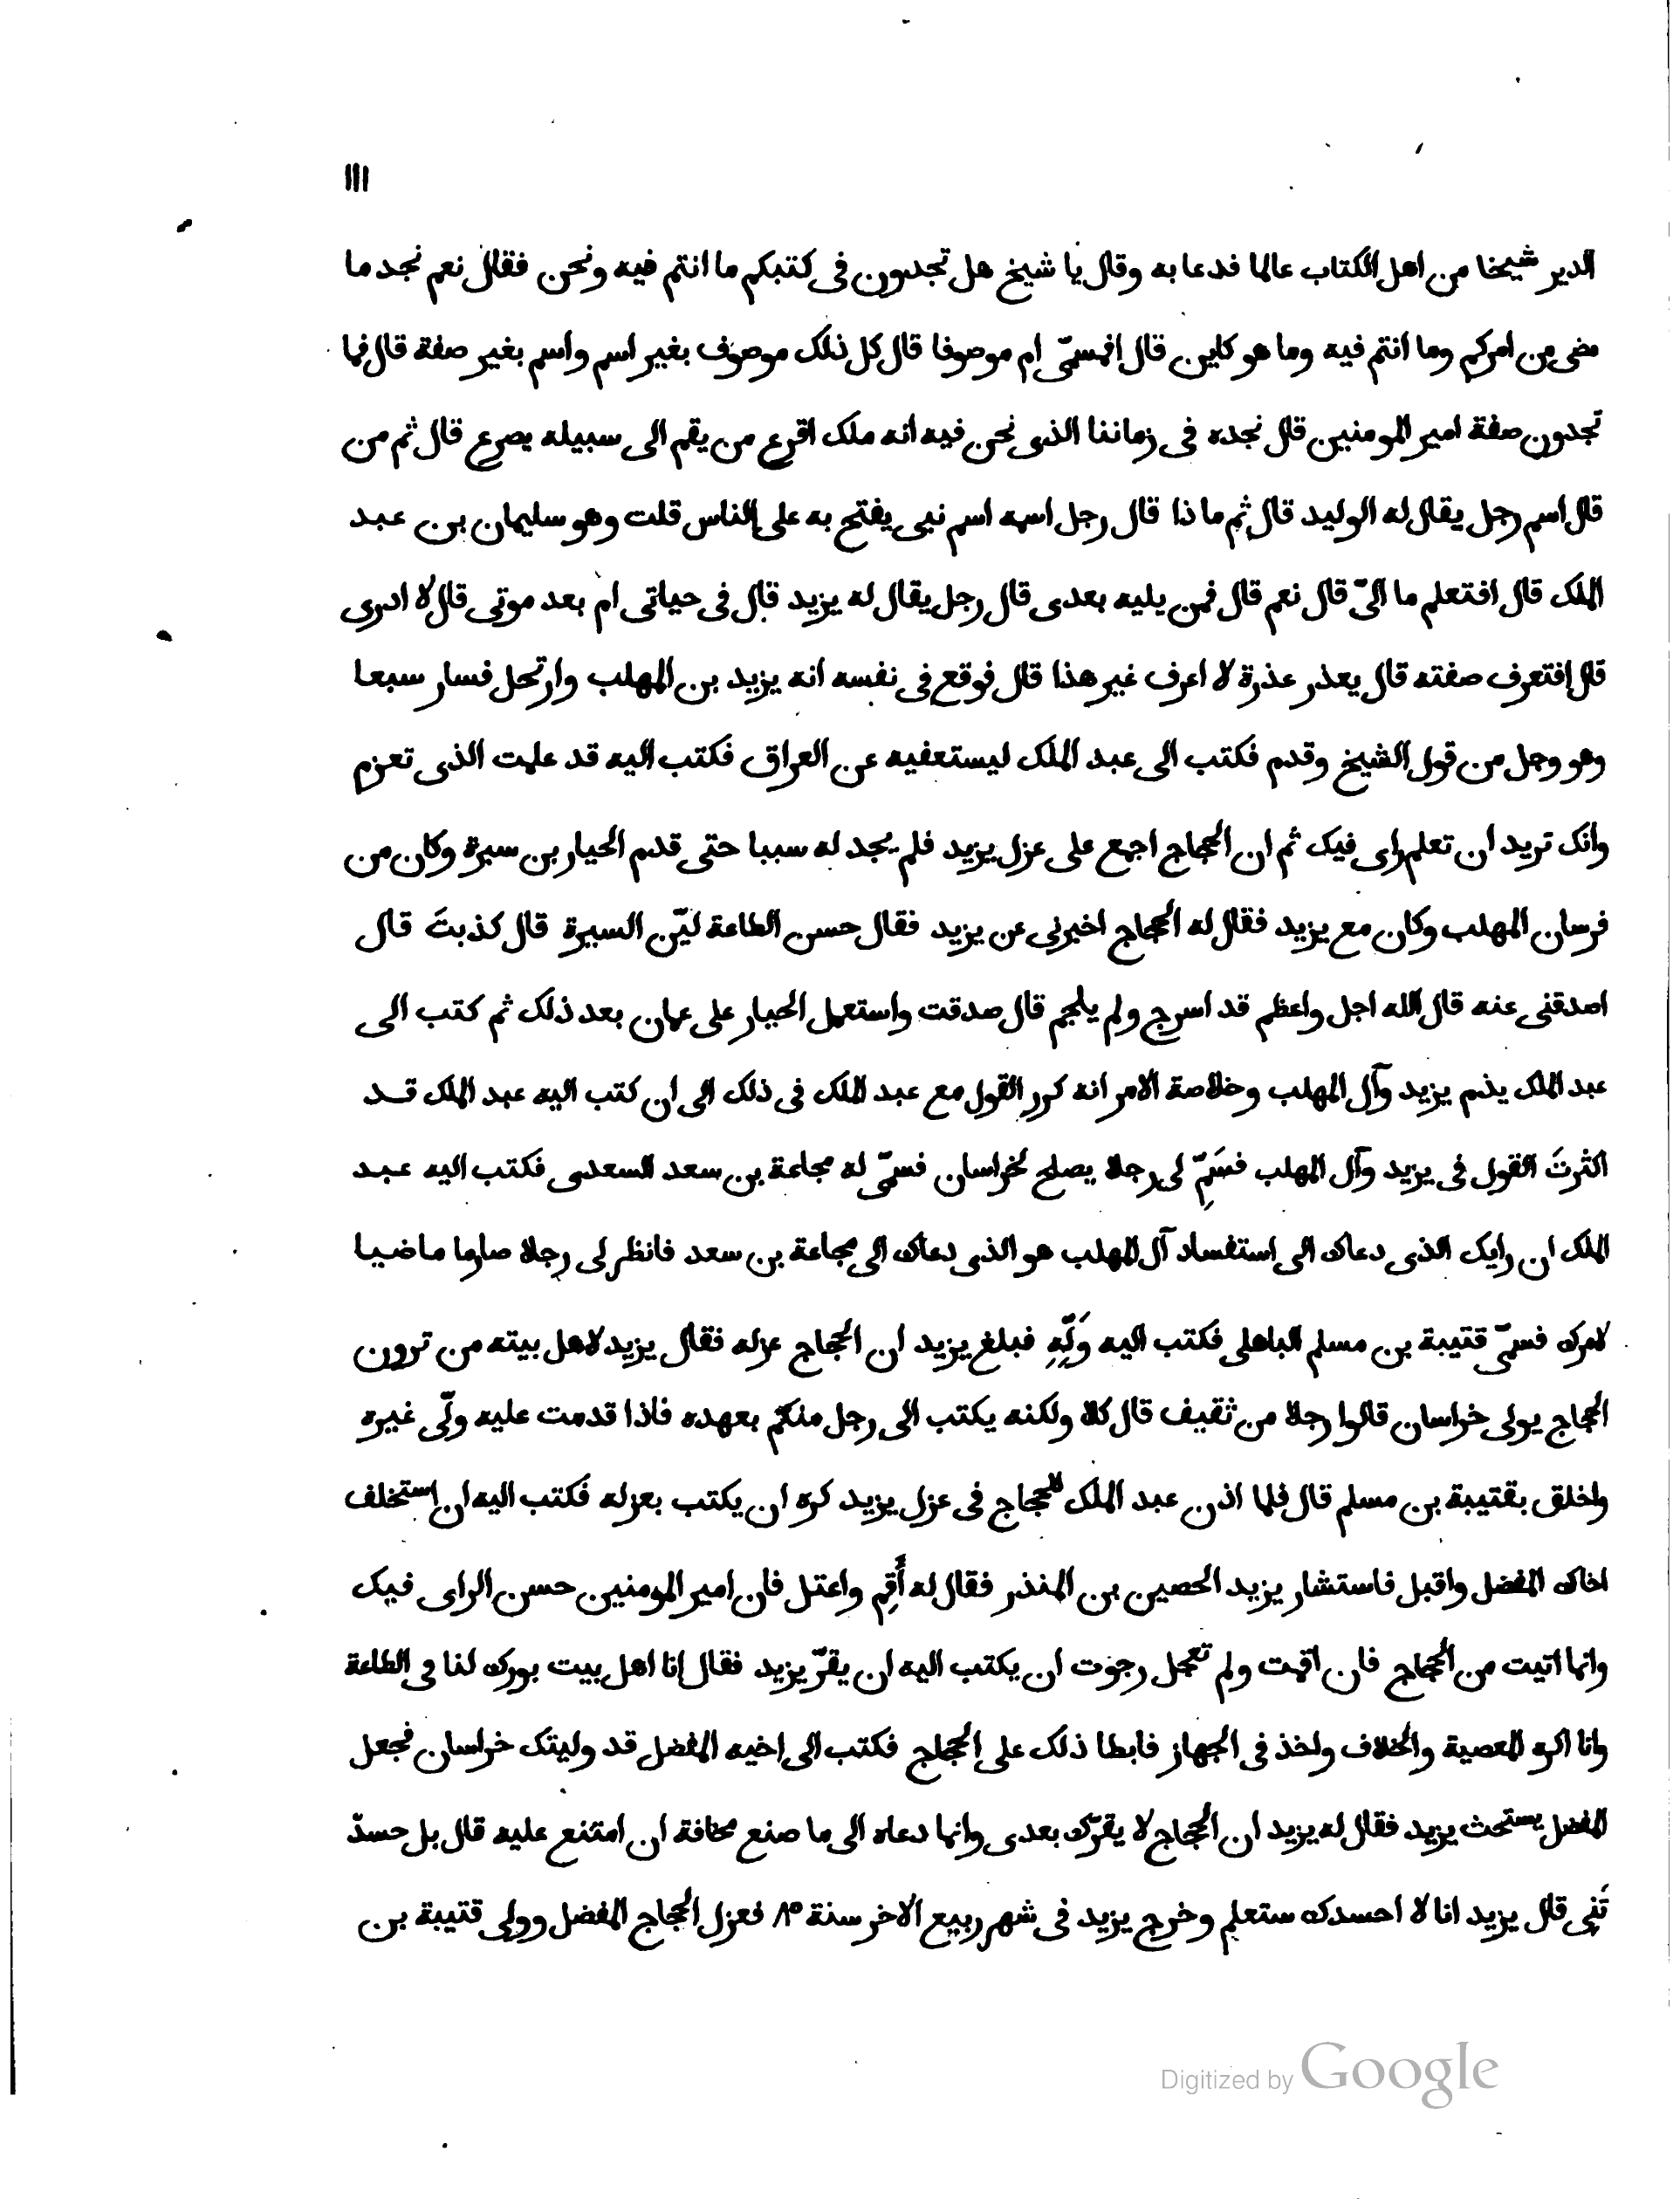 ١١١
الدير شيخا من اهل الكتاب عالما فدعا به وقال يا شيخ هل تجدون فى كتبكم ما انتم فيه ونحن فقال نعم نجد ما
مضى من امركم وما انتم فيه وما هو كاين قال افمسمّى ام موصوفا قال كل ذلك موصوف بغير اسم واسم بغير صفة قال فما
تجدون صفة امير المومنين قال نجده فى زماننا الذى نحن فيه انه ملك اقرع من يقم الى سبيله يصرع قال ثم من
قال اسم رجل يقال له الوليد قال ثم ما ذا قال رجل اسمه اسم نبى يفتح به على الناس قلت وهو سليمان بن عبد
الملك قال افتعلم ما الىّ قال نعم قال فمن يليه بعدى قال رجل يقال له يزيد قال فى حياتى ام بعد موتى قال لا ادرى
قال افتعرف صفته قال يعذر عذرة لا اعرف غير هذا قال فوقع فى نفسه انه يزيد بن المهلب وارتحل فسار سبعا
وهو وجل من قول الشيخ وقدم فكتب الى عبد الملك ليستعفيه عن العراق فكتب اليه قد علمت الذى تعزم
وانك تريد ان تعلم راى فيك ثم ان الحجاج اجمع على عزل يزيد فلم يجد له سببا حتى قدم الحيار بن سبرة وكان من
فرسان المهلب وكان مع يزيد فقال له الحجاج اخبرنى عن يزيد فقال حسن الطاعة ليّن السيرة قال كذبتَ قال
اصدقنى عنه قال الله اجل واعظم قد اسرج ولم يلجم قال صدقت واستعمل الحيار على عمان بعد ذلك ثم كتب الى
عبد الملك يذم يزيد وآل المهلب وخلاصة الامر انه كرر القول مع عبد الملك فى ذلك الى ان كتب اليه عبد الملك قد
اكثرتَ القول فى يزيد وآل المهلب فسَمِّ لى رجلا يصلح لخراسان فسمّى له مجاعة بن سعد السعدى فكتب اليه عبد
الملك ان رايك الذى دعاك الى استفساد آل المهلب هو الذى دعاك الى مجاعة بن سعد فانظر لى رجلا صارما ماضيا
لامرك فسمّى قتيبة بن مسلم الباهلى فكتب اليه وَلِّهِ فبلغ يزيد ان الحجاج عزله فقال يزيد لاهل بيته من ترون
الحجاج يولى خراسان قالوا رجلا من ثقيف قال كلا ولكنه يكتب الى رجل منكم بعهده فاذا قدمت عليه ولّى غيره
واخلق بقتيبة بن مسلم قال فلما اذن عبد الملك للحجاج فى عزل يزيد كره ان يكتب بعزله فكتب اليه ان استخلف
اخاك المفضل واقبل فاستشار يزيد الحصين بن المنذر فقال له أَقِم واعتل فان امير المومنين حسن الراى فيك
وانما اتيت من الحجاج فان اقمت ولم تعجل رجوت ان يكتب اليه ان يقرّ يزيد فقال انا اهل بيت بورك لنا فى الطاعة
وانا اكره المعصية والخلاف واخذ فى الجهاز فابطا ذلك على الحجاج فكتب الى اخيه المفضل قد وليتك خراسان فجعل
المفضل يستحث يزيد فقال له يزيد ان الحجاج لا يقرّك بعدى وانما دعاه الى ما صنع مخافة ان امتنع عليه قال بل حسدّ
تَنِى قال يزيد انا لا احسدك ستعلم وخرج يزيد فى شهر ربيع الاخر سنة ٨٥ فعزل الحجاج المفضل وولى قتيبة بن
Digitized by Google